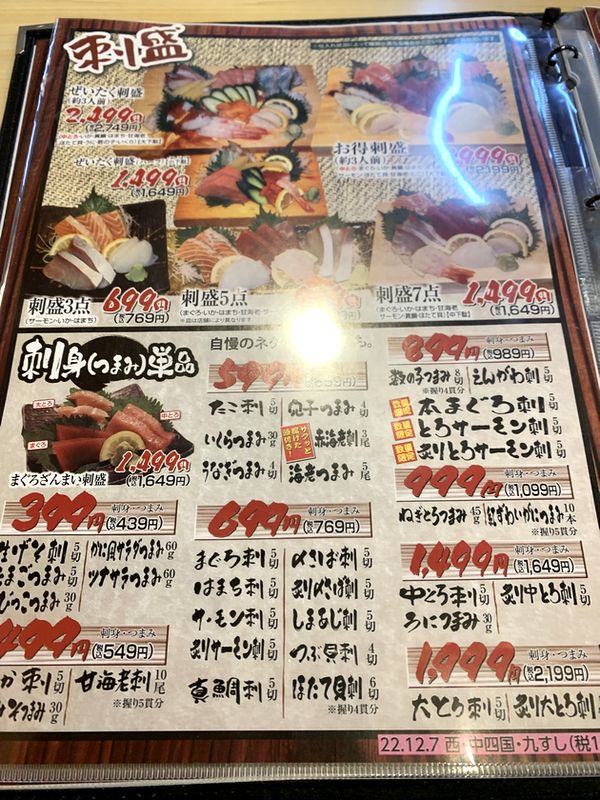 刺盛
ぜいたく刺盛
(約3人前)
2,499円
(税込2,749円)
ぜいたく刺盛
1,499円
(税込1,649円)
お得刺盛
(約3人前)
999円
(税込2,199円)
刺盛3点
699円
(税込769円)
(サーモン・いか・はまち)
刺盛5点
(まぐろ・いか・はまち・甘海老
※皿は店舗により異なります。
刺盛7点
1,499円
(税込1,649円)
(まぐろ・いか・はまち・甘海老
サーモン・真鯛・ほたて貝)【中下駄】
刺身(つまみ)単品
大とろ
中とろ
まぐろ
1,499円
(税込1,649円)
まぐろざんまい刺盛
自慢のネタ
599円
たこ刺 5切
穴子つまみ
いくらつまみ 30g
サクッと揚げた頭付き!
赤海老刺 3尾
うなぎつまみ 4切
海老つまみ 5尾
899円
刺身・つまみ
(税込989円)
数の子つまみ 8切
※握り4貫分
えんがわ刺 5切
数量限定
本まぐろ刺 5切
数量限定
とろサーモン刺 5切
数量限定
炙りとろサーモン刺 5切
999円
刺身・つまみ
(税込1,099円)
ねぎとろつまみ 45g
紅ずわいがにつまみ 10本
※握り5貫分
1,499円
刺身・つまみ
(税込1,649円)
中とろ刺 5切
炙り中とろ刺 5切
うにつまみ 30g
1,999円
刺身・つまみ
(税込2,199円)
大とろ刺 5切
炙り大とろ刺 5切
399円
刺身・つまみ
(税込439円)
生げそ刺 5切
かに風サラダつまみ 60g
たまごつまみ 5切
ツナサラダつまみ 60g
30g
499円
刺身・つまみ
(税込549円)
か刺 5切
甘海老刺 10尾
※握り5貫分
つまみ 30g
699円
刺身・つまみ
(税込769円)
まぐろ刺 5切
〆さば刺 5切
はまち刺 5切
炙り〆さば刺 5切
サーモン刺 5切
しまあじ刺 5切
炙りサーモン刺 5切
つぶ貝刺 4切
真鯛刺 5切
ほたて貝刺 6切
※握り4貫分
22.12.7 西・中四国・九すし(税1